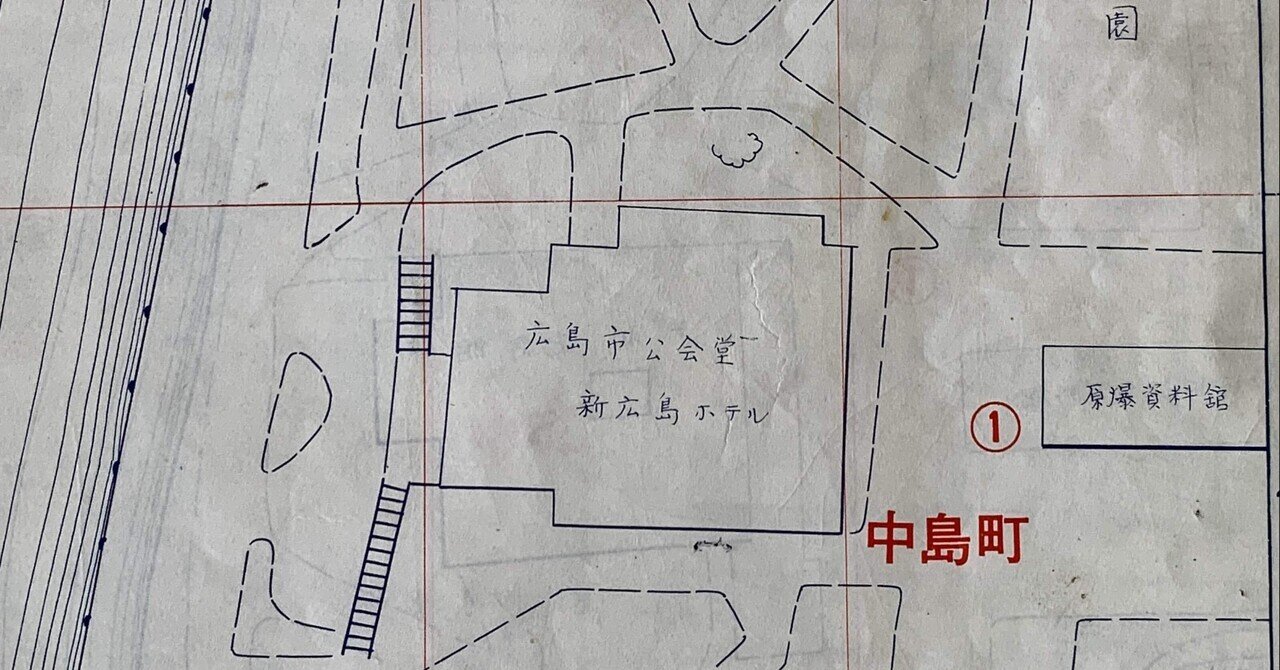 園
広島市公会堂
新広島ホテル
原爆資料館
①
中島町